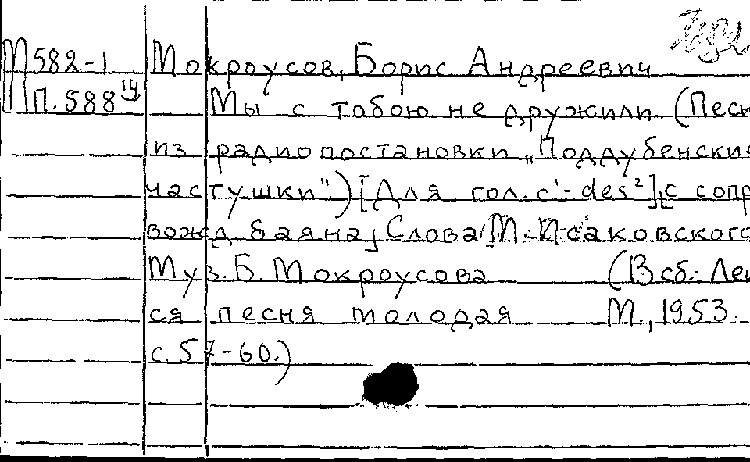 М582-1 Мокроусов, Борис Андреевич
П.588 Мы с тобою не дружили (Песн
из радиопостановки „Поддубенские
частушки") [Для гол. c¹-des²] с сопр
вожд баяна, Слова М. Исаковского
Муз. Б. Мокроусова (В сб.: Лей
ся песня молодая М., 1953.
с. 57-60.)